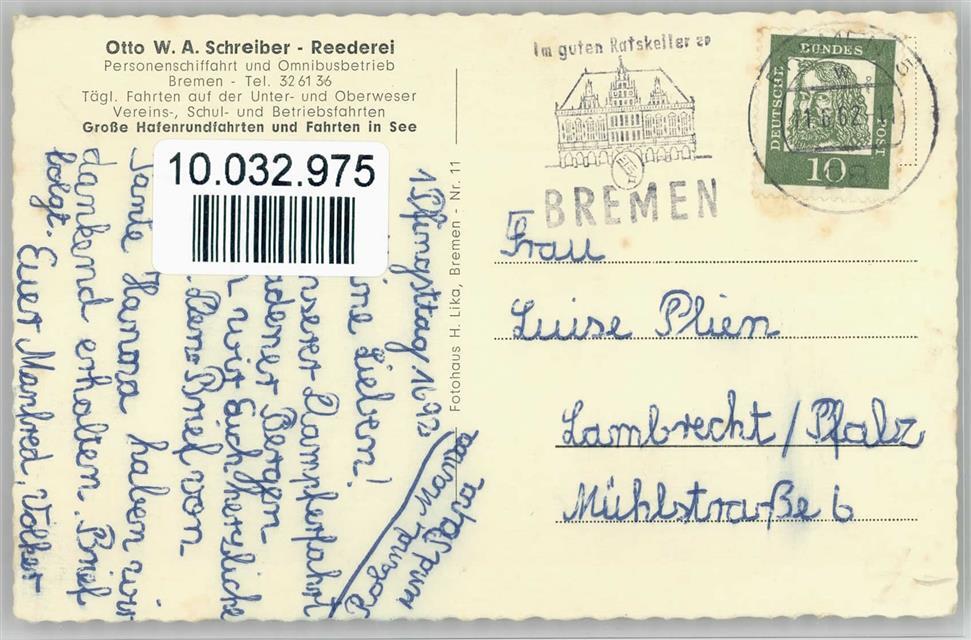 Otto W. A. Schreiber - Reederei
Personenschiffahrt und Omnibusbetrieb
Bremen - Tel. 32 61 36
Tägl. Fahrten auf der Unter- und Oberweser
Vereins-, Schul- und Betriebsfahrten
Große Hafenrundfahrten und Fahrten in See
10.032.975
Im guten Ratskeller zu
BREMEN
DEUTSCHE
BUNDES
POST
10
Fotohaus H. Lika, Bremen - Nr. 11
Frau
Luise Plien
Lambrecht/Pfalz
Mühlstraße 6
Lieben!
unserer Dampferfahrt
wir Euch herzliche
Brief von
Tante Hanna haben wir
dankend erhalten. Brief
folgt. Euer Manfred, Volker
Roland Mama
und Papa